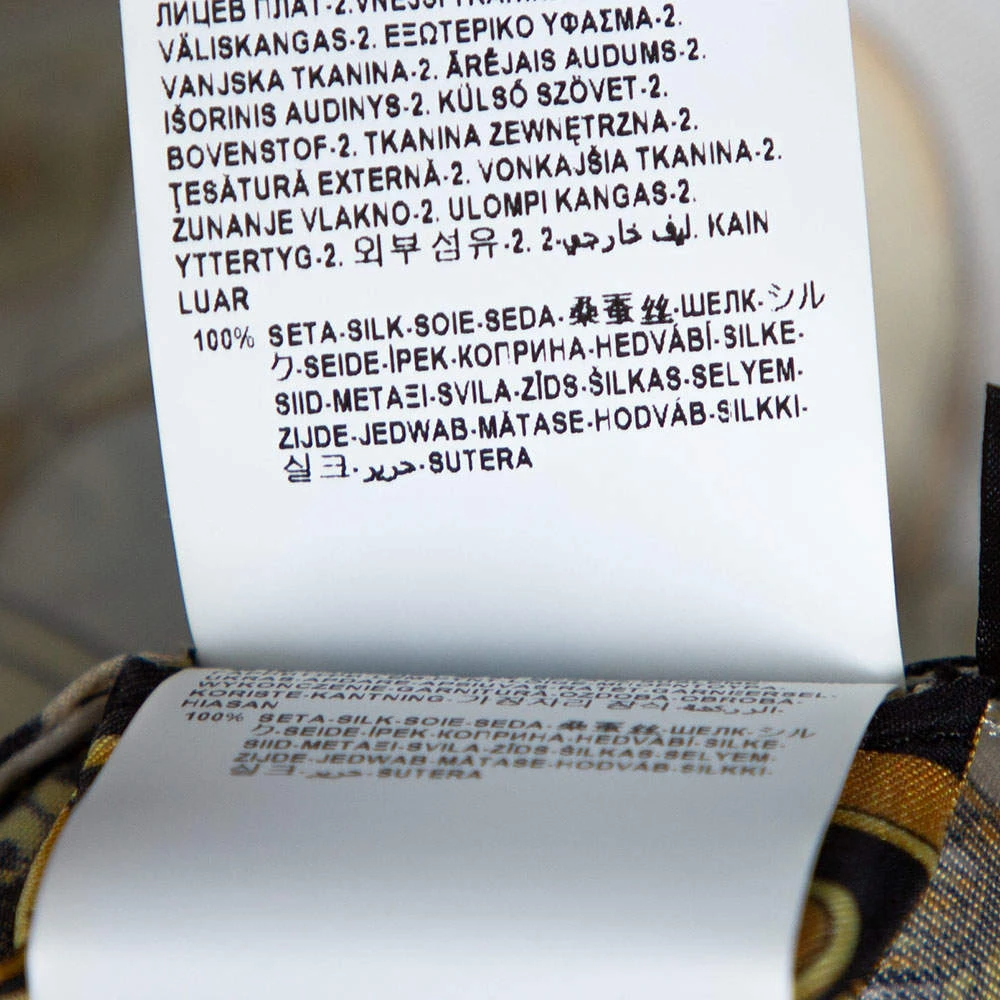 ЛИЦЕВ ПЛАТ-2.
VÄLISKANGAS-2. ΕΞΩΤΕΡΙΚΟ ΥΦΑΣΜΑ-2.
VANJSKA TKANINA-2. ĀRĒJAIS AUDUMS-2.
IŠORINIS AUDINYS-2. KÜLSŐ SZÖVET-2.
BOVENSTOF-2. TKANINA ZEWNĘTRZNA-2.
ŢESĂTURĂ EXTERNĂ-2. VONKAJŠIA TKANINA-2.
ZUNANJE VLAKNO-2. ULOMPI KANGAS-2.
YTTERTYG-2. 외부 섬유-2. ليف خارجي-2. KAIN
LUAR
100% SETA-SILK-SOIE-SEDA-桑蚕丝-ШЕЛК-シル
ク-SEIDE-İPEK-КОПРИНА-HEDVÁBÍ-SILKE-
SIID-ΜΕΤΑΞΙ-SVILA-ZĪDS-ŠILKAS-SELYEM-
ZIJDE-JEDWAB-MĂTASE-HODVÁB-SILKKI-
실크-حرير-SUTERA
KORISTE-KANTNING-가장자리 장식-الزركشة.
HIASAN
100% SETA-SILK-SOIE-SEDA-桑蚕丝-ШЕЛК-シル
ク-SEIDE-İPEK-КОПРИНА-HEDVÁBÍ-SILKE-
SIID-ΜΕΤΑΞΙ-SVILA-ZĪDS-ŠILKAS-SELYEM-
ZIJDE-JEDWAB-MĂTASE-HODVÁB-SILKKI-
실크-حرير-SUTERA